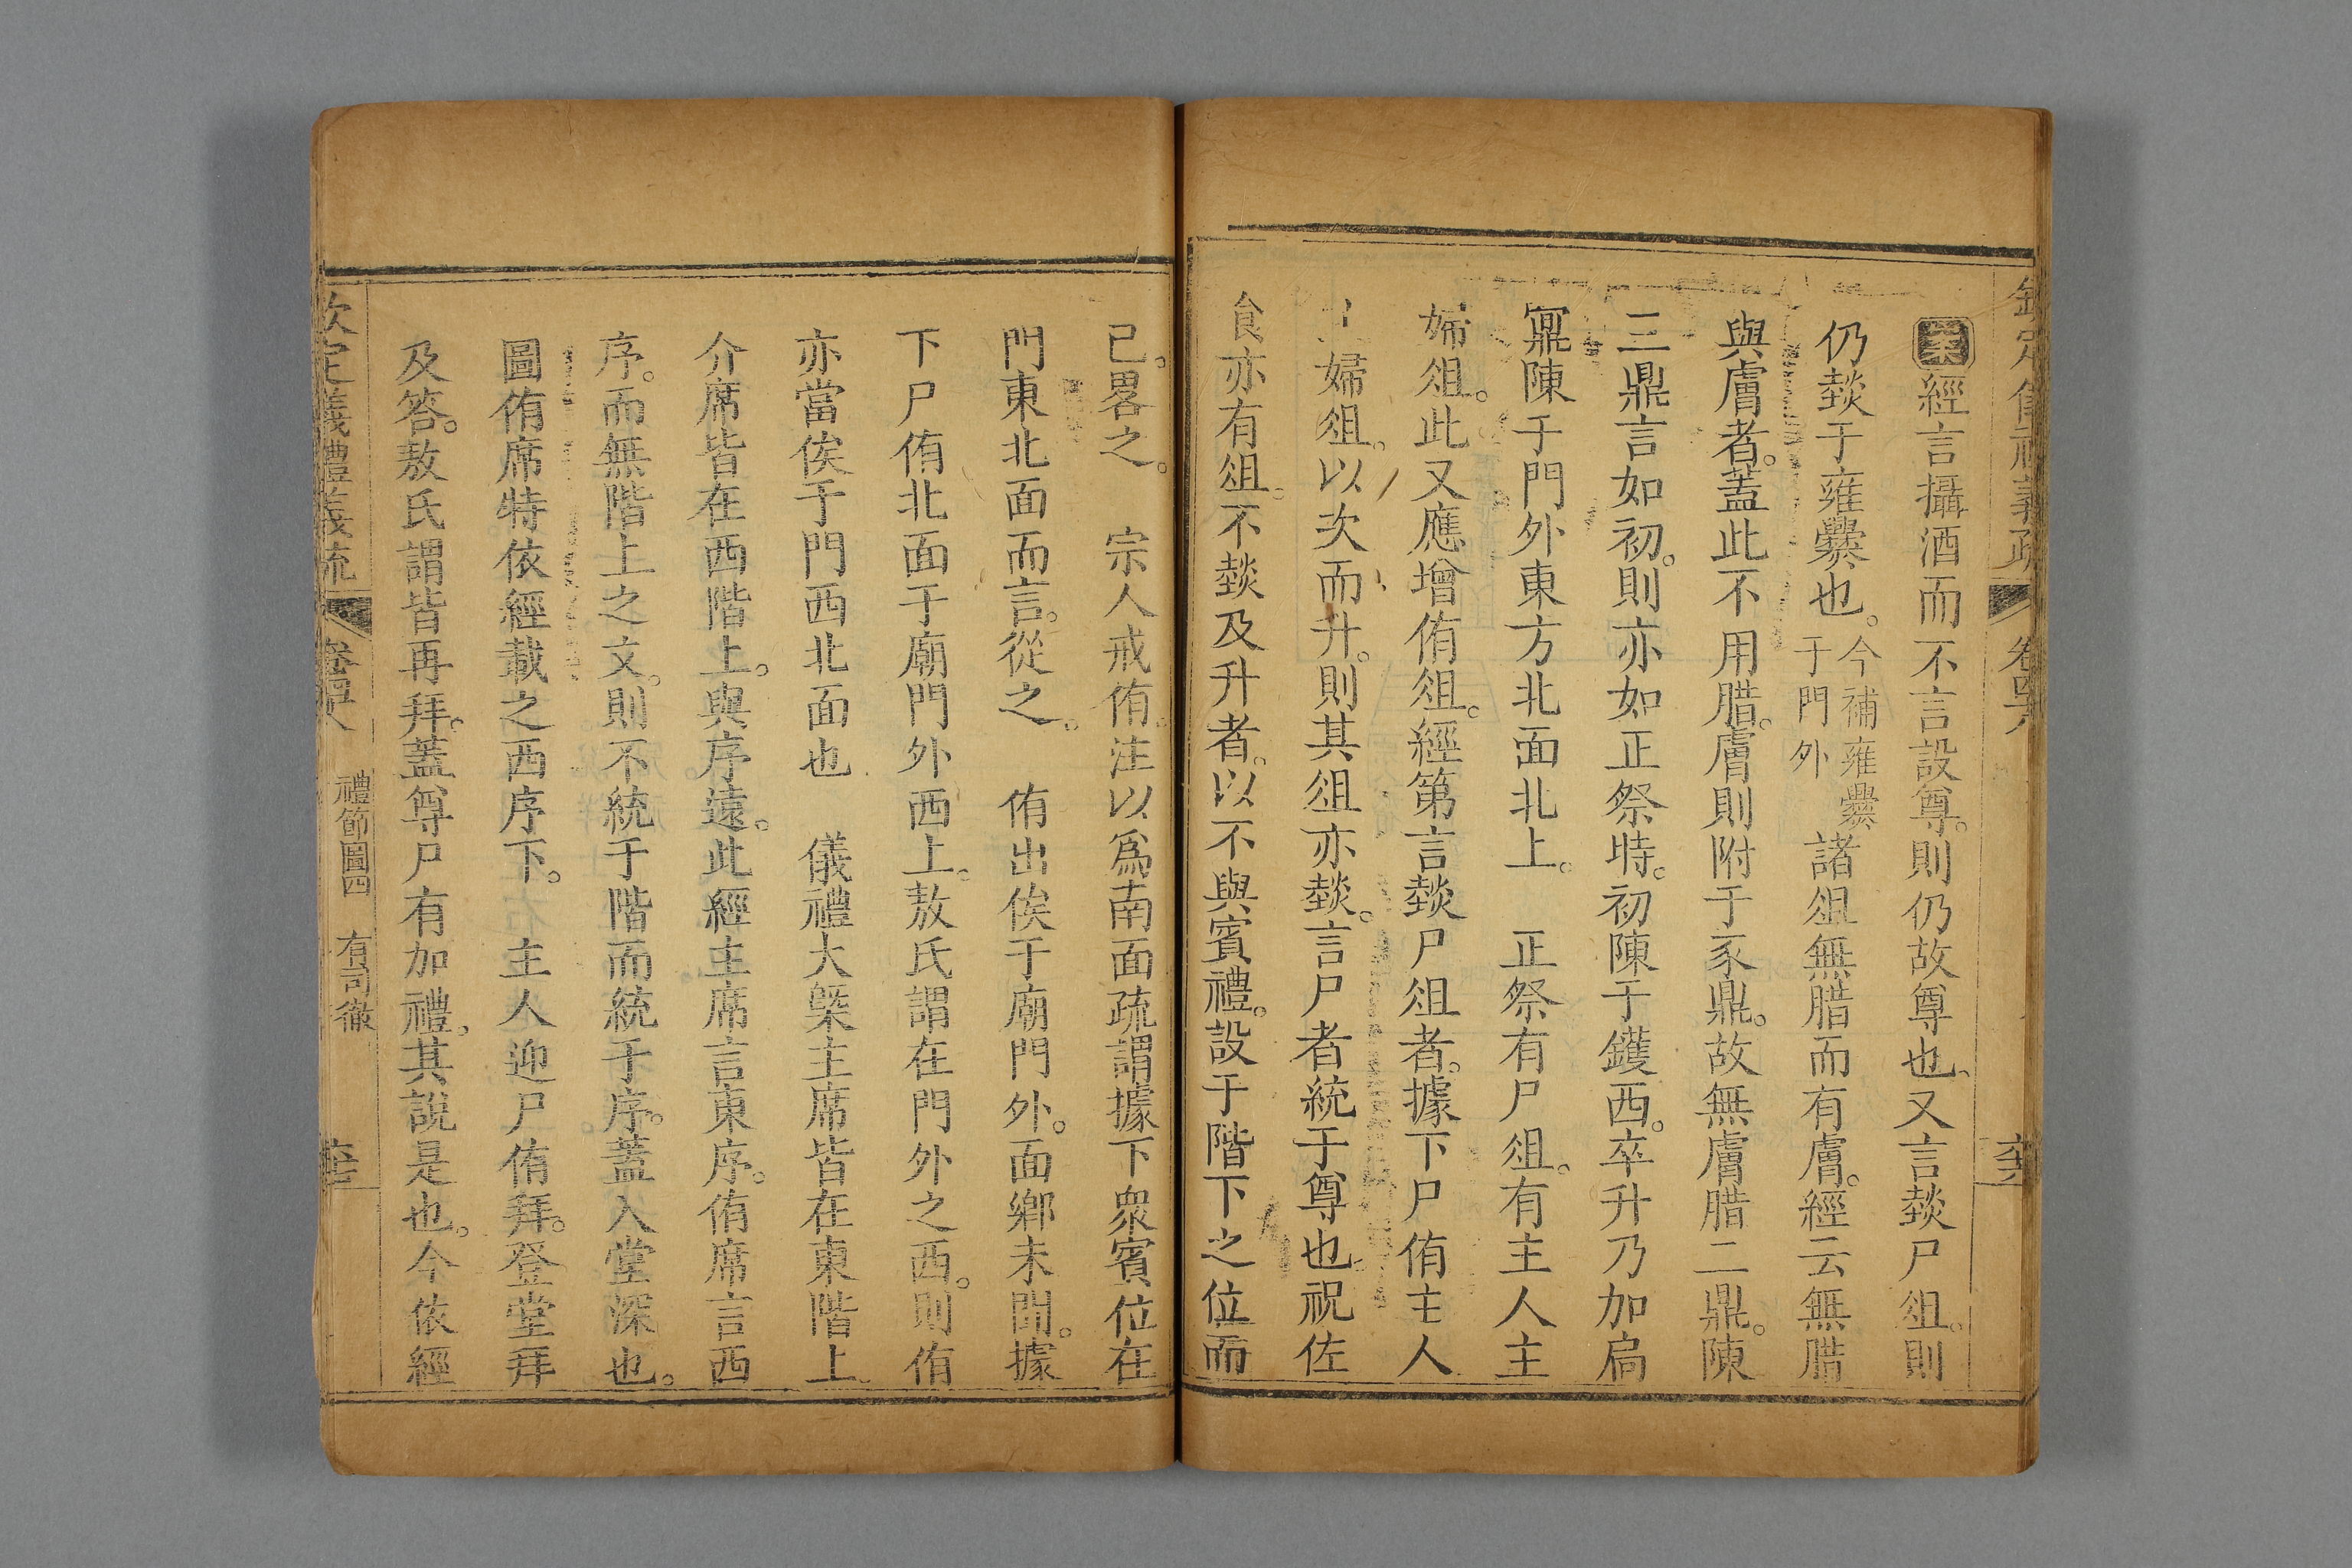 欽定儀禮義疏 卷四十八
案經言攝酒而不言設尊。則仍故尊也。又言燅尸俎。則
仍燅于雍爨也。今補雍爨于門外諸俎無腊而有膚。經云無腊
與膚者。蓋此不用腊。膚則附于豕鼎。故無膚腊二鼎。陳
三鼎言如初。則亦如正祭時。初陳于鑊西。卒升乃加扃
鼏陳于門外東方北面北上。 正祭有尸俎。有主人主
婦俎。此又應增侑俎。經第言燅尸俎者。據下尸侑主人
婦俎。以次而升。則其俎亦燅。言尸者統于尊也。祝佐
食亦有俎。不燅及升者。以不與賓禮。設于階下之位而
已。畧之。 宗人戒侑。注以為南面疏謂據下衆賓位在
門東北面而言。從之。 侑出俟于廟門外。面鄉未聞。據
下尸侑北面于廟門外西上。敖氏謂在門外之西。則侑
亦當俟于門西北面也 儀禮大槩主席皆在東階上。
介席皆在西階上。與序遠。此經主席言東序。侑席言西
序。而無階上之文。則不統于階而統于序。蓋入堂深也。
圖侑席特依經載之西序下。 主人迎尸侑拜。登堂拜
及答。敖氏謂皆再拜。蓋尊尸有加禮。其說是也。今依經
欽定儀禮義疏 卷四十八 禮節圖四 有司徹